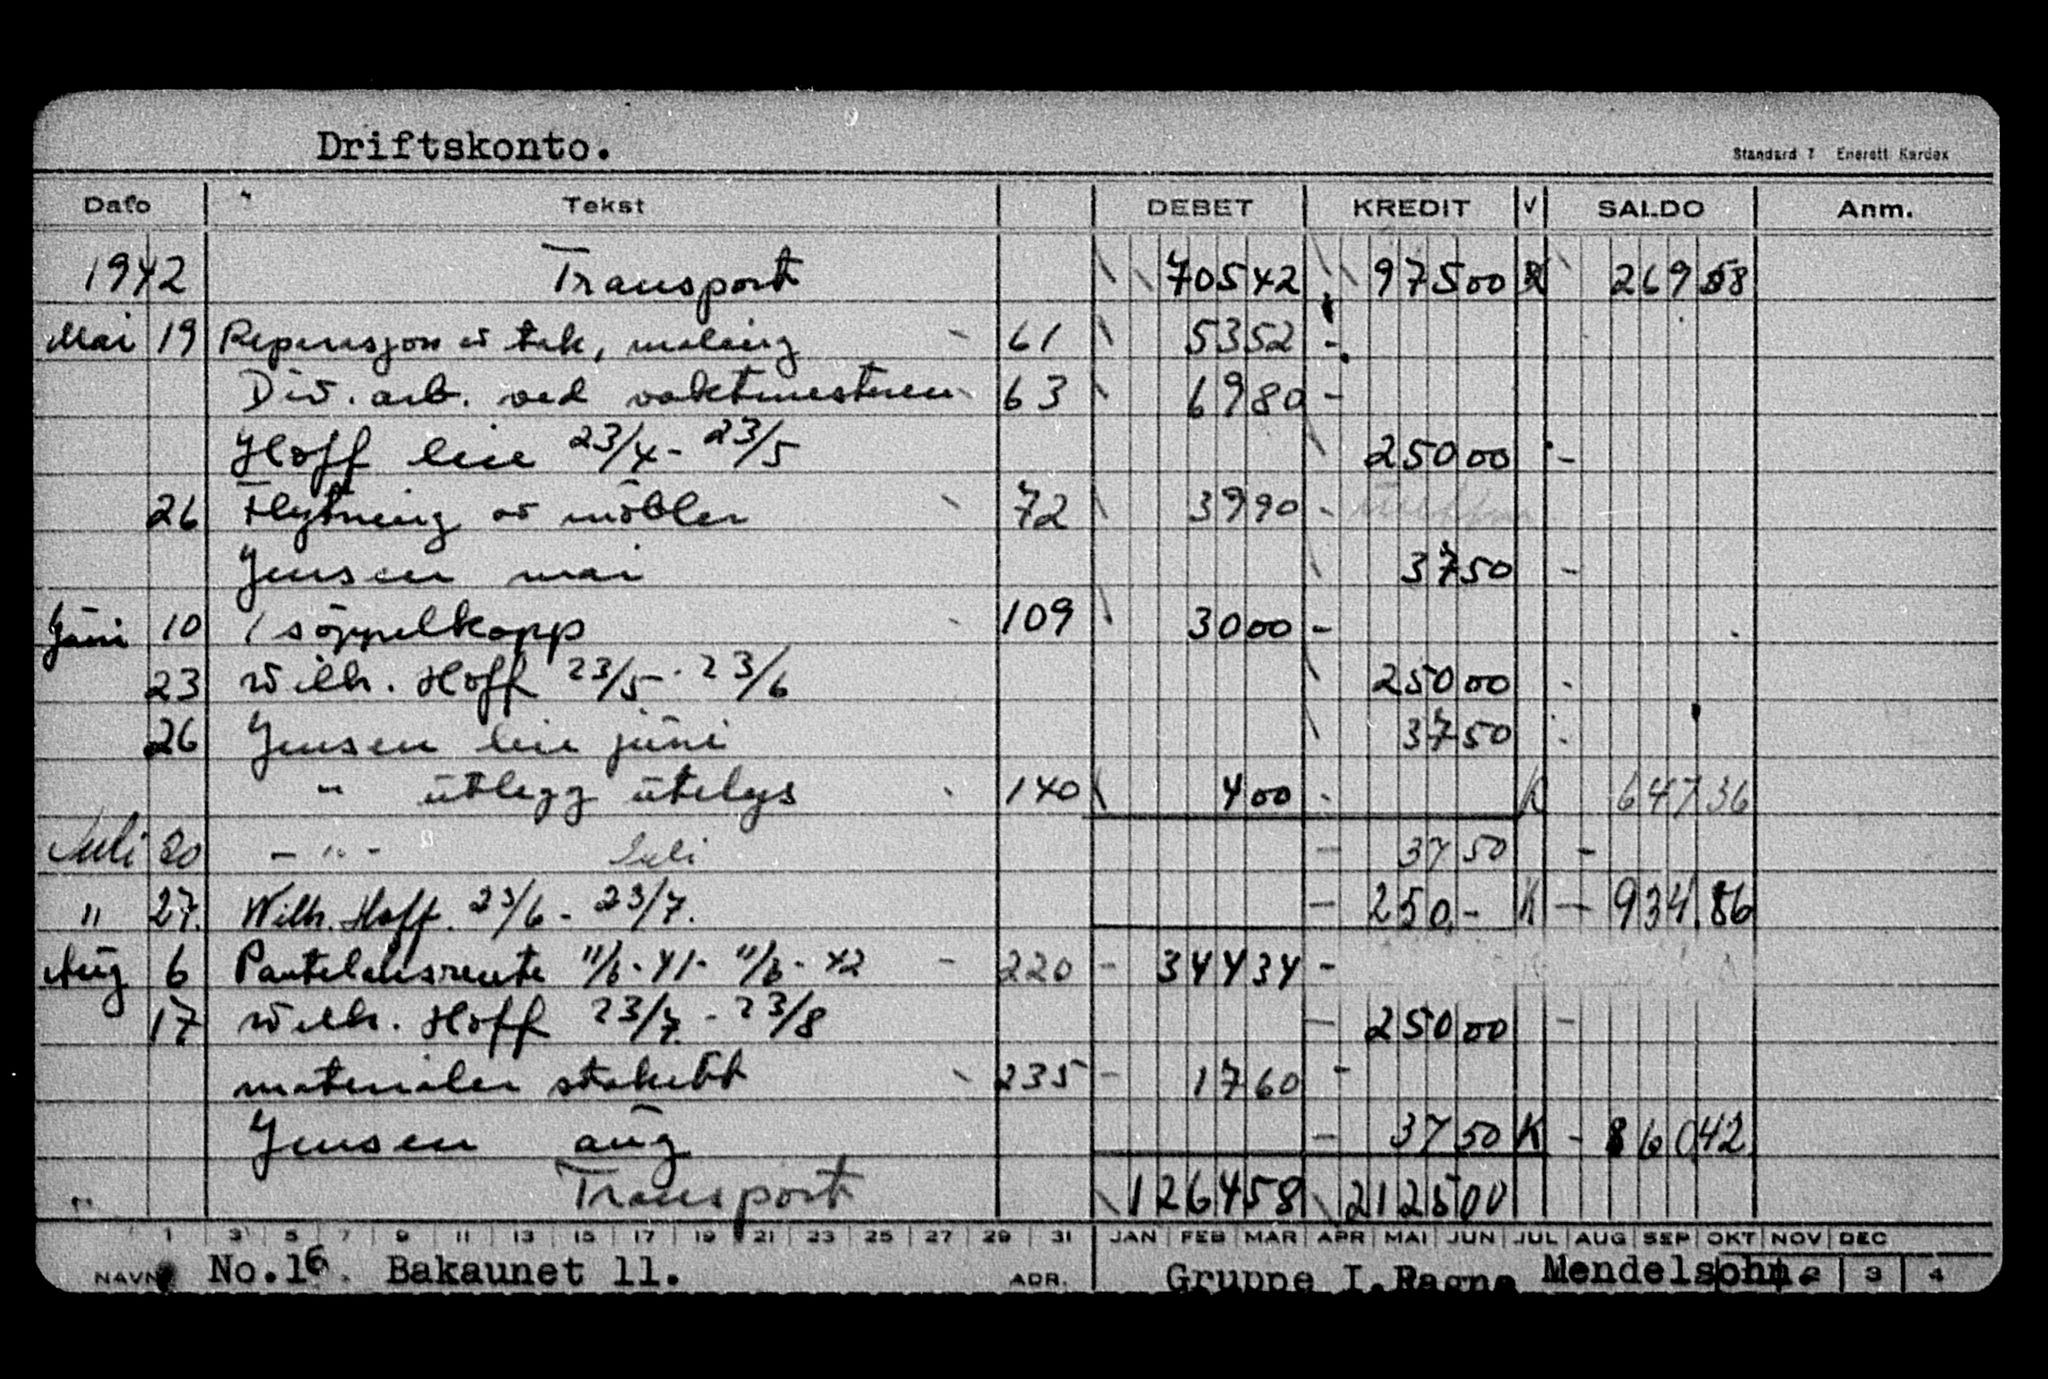 Driftskonto.
Standard 7 Enerett Kardex
Dato Tekst DEBET KREDIT V SALDO Anm.
1942 Transport 705 42 975 00 K 269 58
Mai 19 Reparasjon av tak, maling 61 53 52
Div. arb. ved vaktmesteren 63 69 80
Hoff leie 23/4 - 23/5 250 00
26 Flytning av möbler 72 39 90
Jensen mai 37 50
Juni 10 1 söppelkopp 109 30 00
23 Wilh. Hoff 23/5 - 23/6 250 00
26 Jensen leie juni 37 50
" utlegg utelys 140 4 00 K 647 36
Juli 20 - " - Juli 37 50
" 27. Wilh. Hoff. 23/6 - 23/7. 250.- K 934.86
Aug 6 Pantelånsrente 11/6 - 41 - 11/6 - 42 220 344 34
17 Wilh. Hoff 23/7 - 23/8 250 00
materialer stakitt 235 17 60
Jensen aug 37 50 K 860.42
" Transport 1264 58 2125 00
1 3 5 7 9 11 13 15 17 19 21 23 25 27 29 31 JAN FEB MAR APR MAI JUN JUL AUG SEP OKT NOV DEC
NAVN No.16. Bakaunet 11. ADR. Gruppe I. Ragna Mendelsohn. 2 3 4